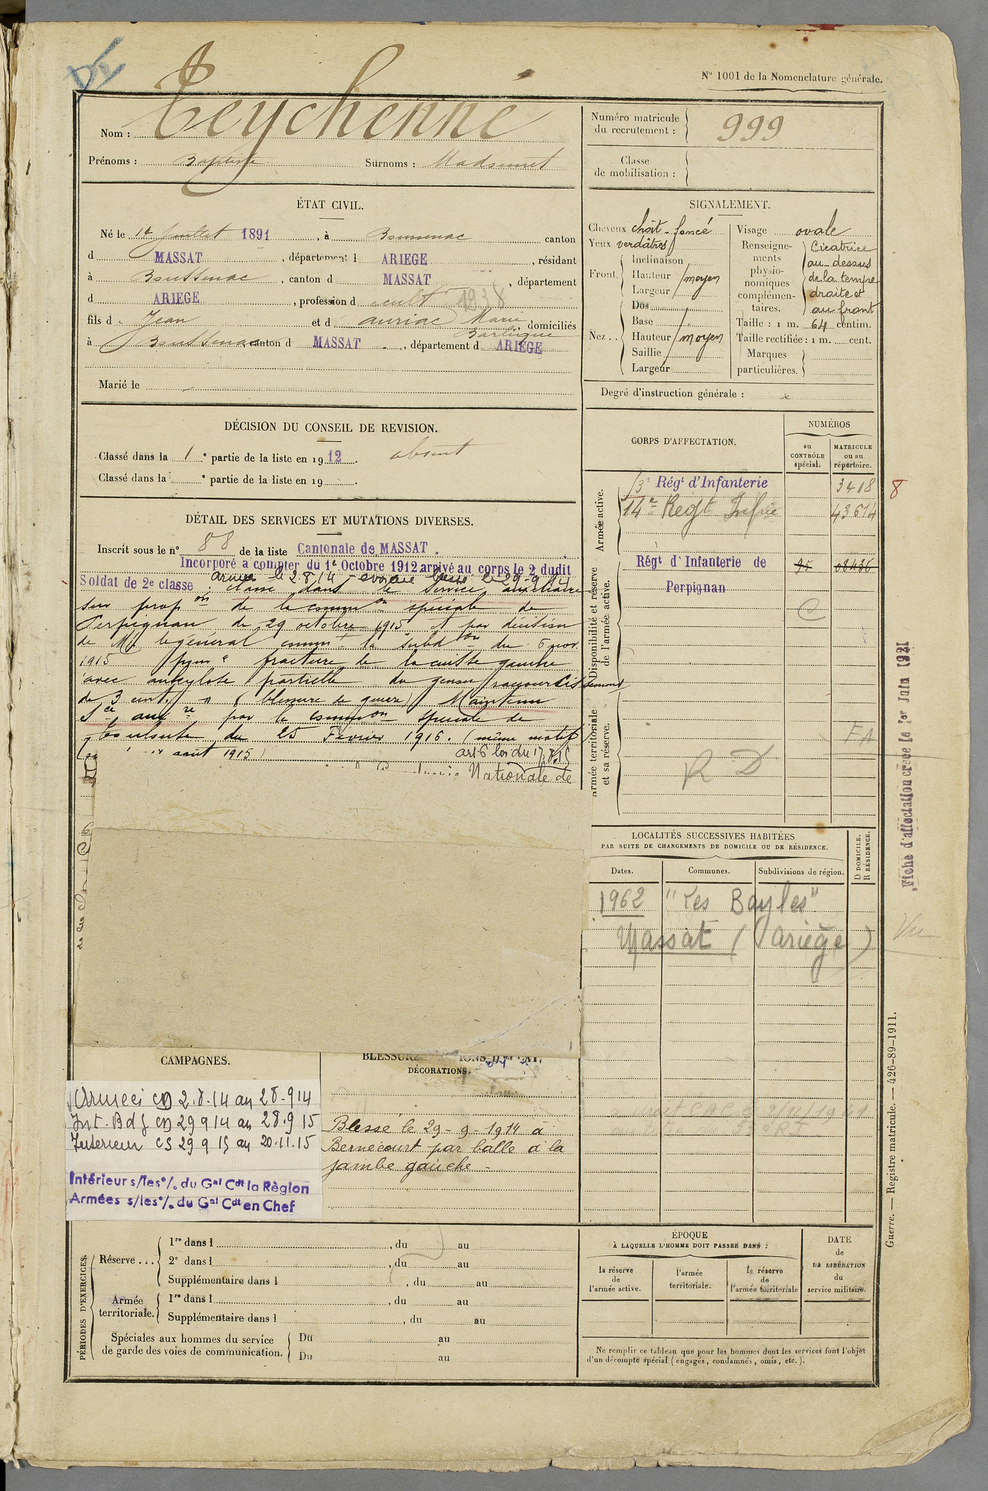 N° 1001 de la Nomenclature générale.
Nom : Teychenné
Prénoms : Baptiste Surnoms : Madounet
Numéro matricule du recrutement : 999
Classe de mobilisation :
ÉTAT CIVIL.
Né le 14 juillet 1891, à Boussenac canton
d MASSAT, département d ARIEGE, résidant
à Boussenac, canton d MASSAT, département
d ARIEGE, profession d cult 1938
fils d Jean et d auriac Marie, domiciliés
à Boussenac canton d MASSAT, département d ARIEGE
Marié le
SIGNALEMENT.
Cheveux chât-foncé
Yeux verdâtres
Front. Inclinaison
Hauteur moyen
Largeur
Nez.. Dos
Base
Hauteur moyen
Saillie
Largeur
Visage ovale
Renseignements physionomiques complémentaires. Cicatrice
au-dessus
de la tempe
droite et
au front
Taille : 1 m. 64 centim.
Taille rectifiée : 1 m. cent.
Marques particulières.
Degré d'instruction générale :
DÉCISION DU CONSEIL DE REVISION.
Classé dans la 1e partie de la liste en 1912. absent
Classé dans la e partie de la liste en 19 .
DÉTAIL DES SERVICES ET MUTATIONS DIVERSES.
Inscrit sous le n° 88 de la liste Cantonale de MASSAT.
Incorporé à compter du 1er Octobre 1912 arrivé au corps le 2 dudit
Soldat de 2e classe
armée le 2.8.14 évacué blessé le 29-9-14
classé dans le service auxiliaire
sur propon de la common spéciale de
Perpignan du 29 octobre 1915 et par décision
de Mr le général commt la subdon du 6 nov
1915 fracture de la cuisse gauche
avec ankylose partielle du genou raccourcissement
de 3 cent (blessure de guerre) Maintenu
Sce auxre par la common spéciale de
Toulouse du 25 Fevrier 1916. (même motif
août 1915) art 6 loi du 17.8.15
Nationale de
CORPS D'AFFECTATION.
NUMÉROS
au CONTRÔLE spécial.
MATRICULE ou au répertoire.
Armée active.
Régt d'Infanterie 3418 8
14e Regt Infrie 43614
Disponibilité et réserve de l'armée active.
Régt d'Infanterie de
Perpignan
C
Armée territoriale et sa réserve.
R D
Fiche d'affectation créée le 1er Juin 1921
LOCALITÉS SUCCESSIVES HABITÉES
PAR SUITE DE CHANGEMENTS DE DOMICILE OU DE RÉSIDENCE.
Dates. Communes. Subdivisions de région. D DOMICILE. R RÉSIDENCE.
1962 "Les Bayles"
Massat (Ariège)
Vu
CAMPAGNES.
Armées CD 2.8.14 au 28.9.14
Int. Bd g CD 29 9 14 au 28.9 15
Interieur CS 29 9 15 au 20.11.15
Intérieur s/les °/. du Gal Cdt la Règion
Armées s/les °/. du Gal Cdt en Chef
DÉCORATIONS.
Blessé le 29-9-1914 à
Bernecourt par balle à la
jambe gauche -
Guerre. — Registre matricule. — 426-89-1911.
PÉRIODES D'EXERCICES.
Réserve... 1re dans l , du au
2e dans l , du au
Supplémentaire dans l , du au
Armée territoriale. 1re dans l , du au
Supplémentaire dans l , du au
Spéciales aux hommes du service de garde des voies de communication. Du au
Du au
ÉPOQUE
À LAQUELLE L'HOMME DOIT PASSER DANS :
la réserve de l'armée active.
l'armée territoriale.
la réserve de l'armée territoriale
DATE de LA LIBÉRATION du service militaire.
Ne remplir ce tableau que pour les hommes dont les services font l'objet
d'un décompte spécial (engagés, condamnés, omis, etc.).